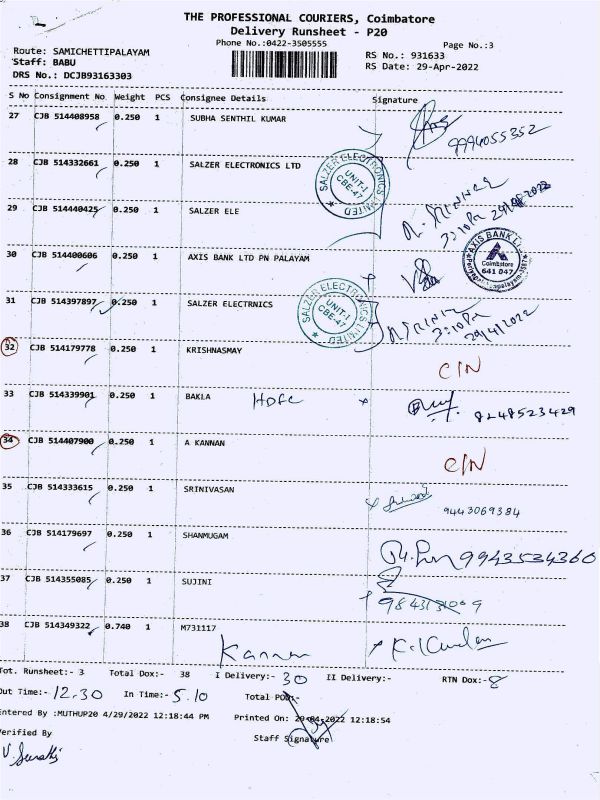 THE PROFESSIONAL COURIERS, Coimbatore
Delivery Runsheet - P20
Phone No.:0422-3505555
Page No.:3
Route: SAMICHETTIPALAYAM
Staff: BABU
DRS No.: DCJB93163303
RS No.: 931633
RS Date: 29-Apr-2022
S No Consignment No Weight PCS Consignee Details Signature
27 CJB 514408958 0.250 1 SUBHA SENTHIL KUMAR
9994055352
28 CJB 514332661 0.250 1 SALZER ELECTRONICS LTD
SALZER ELECTRONICS LIMITED
UNIT-I
CBE-47
29 CJB 514440425 0.250 1 SALZER ELE
3:10PM 29/04/2022
30 CJB 514400606 0.250 1 AXIS BANK LTD PN PALAYAM
AXIS BANK LTD
Coimbatore
641 047
31 CJB 514397897 0.250 1 SALZER ELECTRNICS
SALZER ELECTRONICS LIMITED
UNIT-I
CBE-47
3:10PM
29/4/2022
32 CJB 514179778 0.250 1 KRISHNASMAY
C/N
33 CJB 514339901 0.250 1 BAKLA HDFC
8248523429
34 CJB 514407900 0.250 1 A KANNAN
C/N
35 CJB 514333615 0.250 1 SRINIVASAN
9443069384
36 CJB 514179697 0.250 1 SHANMUGAM
9943534360
37 CJB 514355085 0.250 1 SUJINI
38 CJB 514349322 0.740 1 M731117
Kannan
Tot. Runsheet:- 3 Total Dox:- 38 I Delivery:- 30 II Delivery:- RTN Dox:- 8
Out Time:- 12.30 In Time:- 5.10 Total POD:-
Entered By :MUTHUP20 4/29/2022 12:18:44 PM Printed On: 29-04-2022 12:18:54
Verified By
Staff Signature